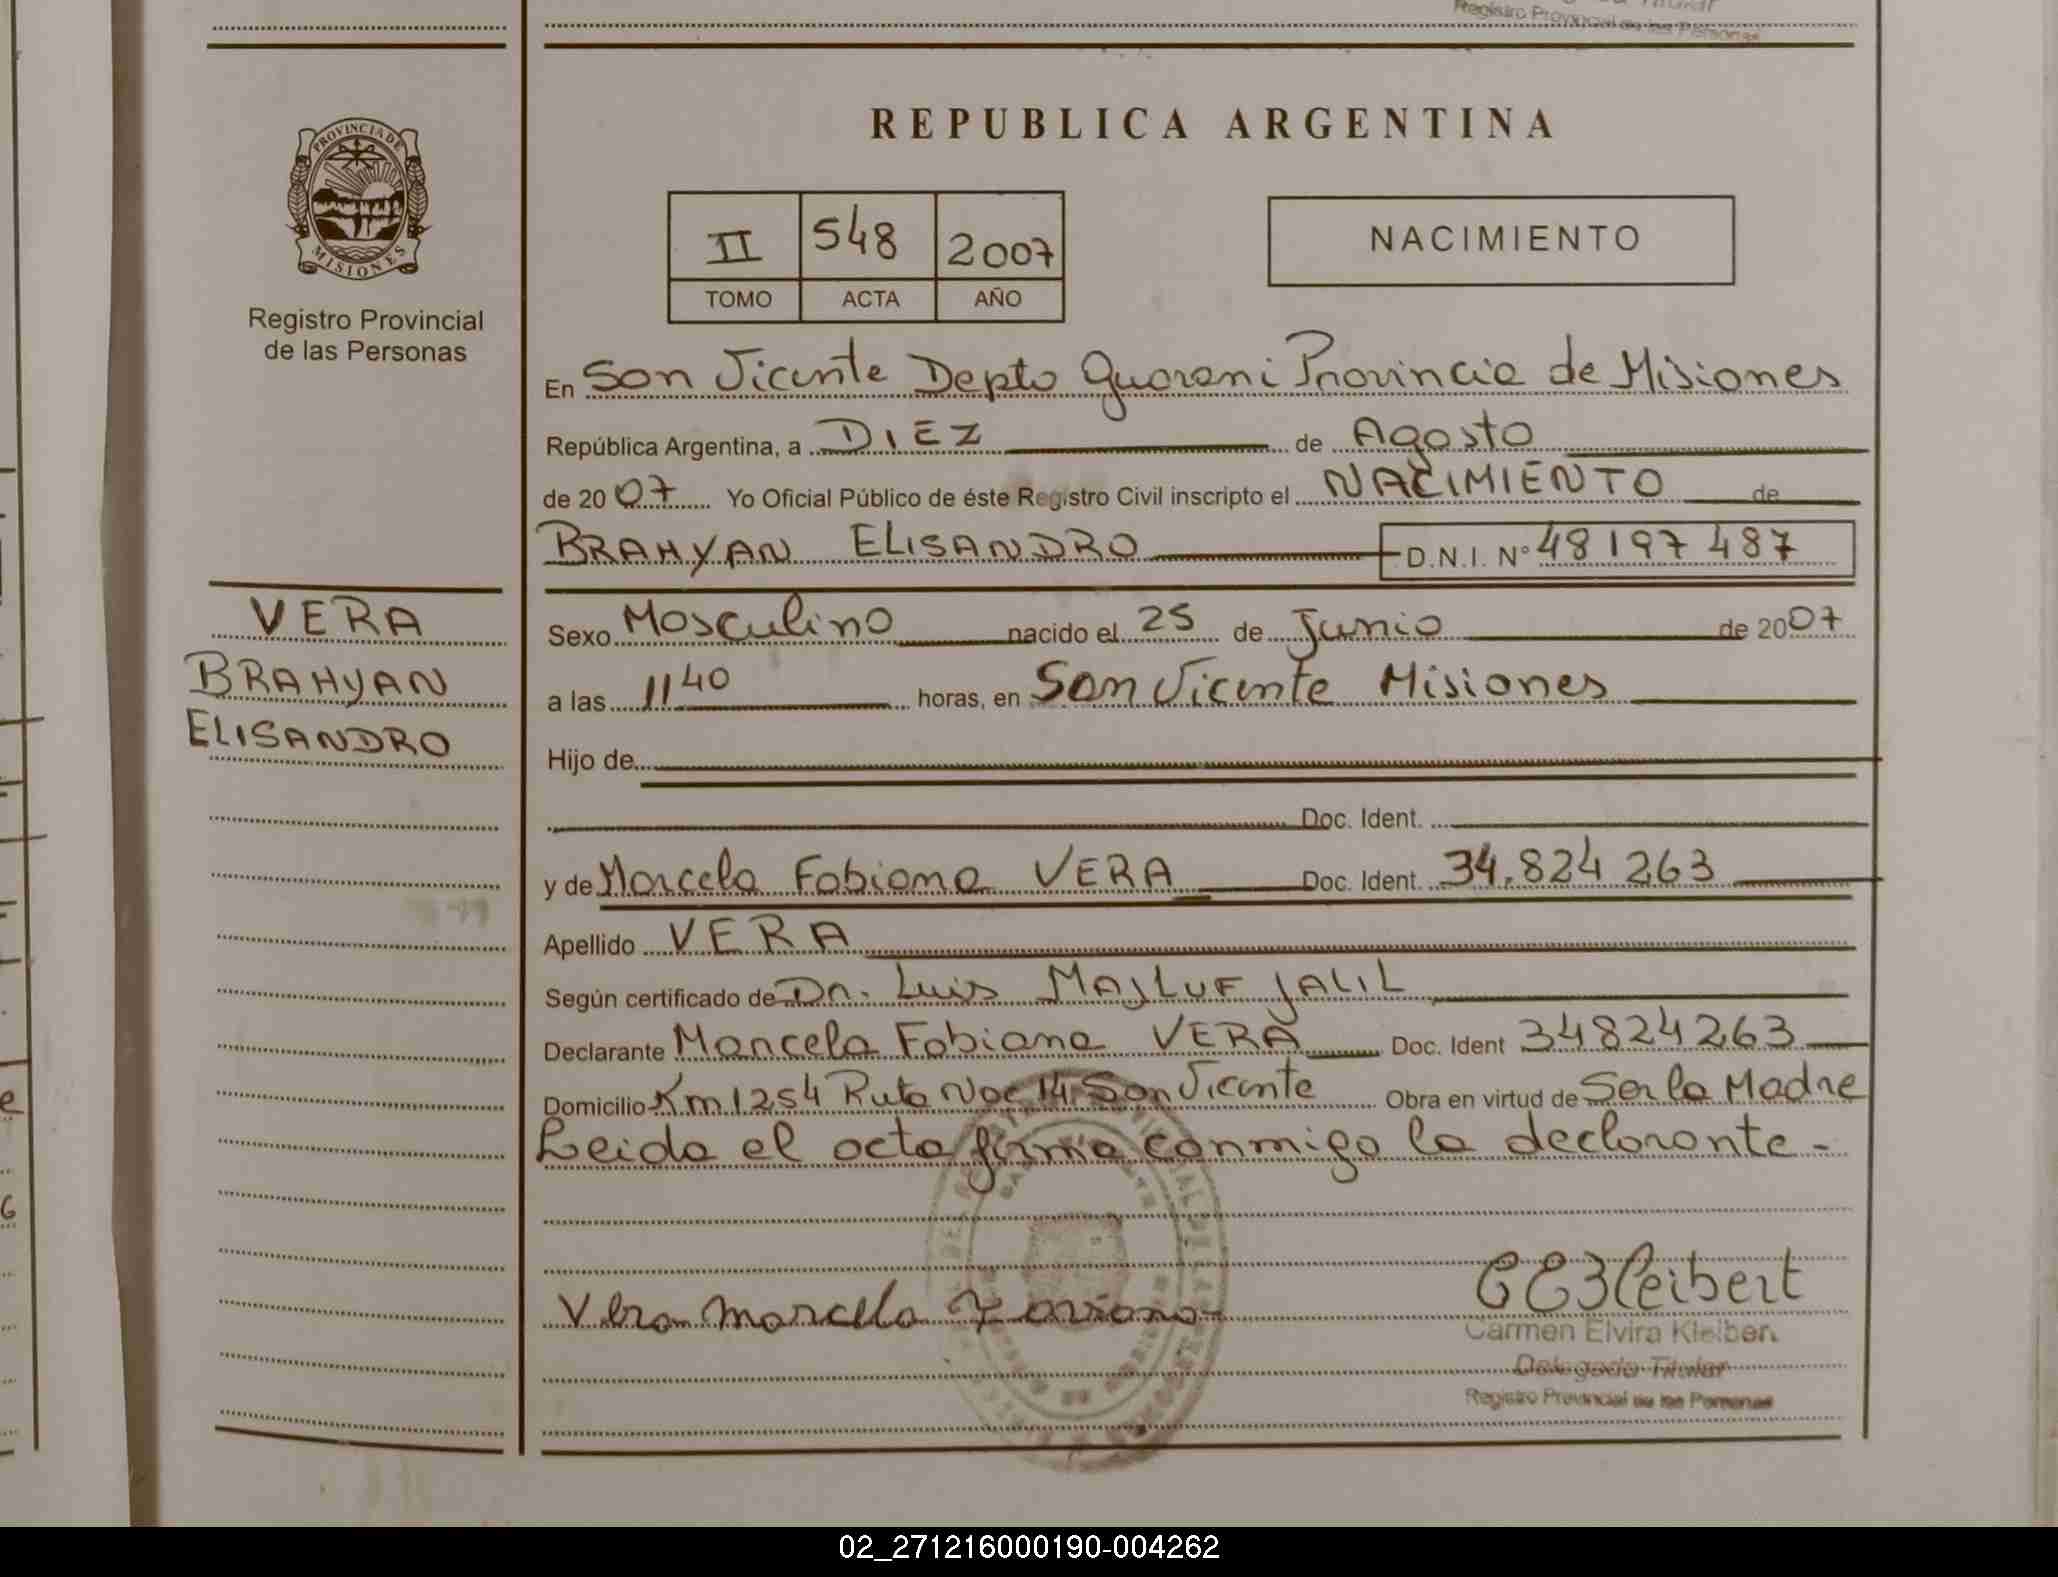 Registro Provincial de las Personas
REPUBLICA ARGENTINA
PROVINCIA DE
MISIONES
Registro Provincial
de las Personas
II 548 2007
TOMO ACTA AÑO
NACIMIENTO
En San Vicente Depto Guarani Provincia de Misiones
República Argentina, a DIEZ de Agosto
de 2007 Yo Oficial Público de éste Registro Civil inscripto el NACIMIENTO de
BRAHYAN ELISANDRO D.N.I. Nº 48197487
VERA
BRAHYAN
ELISANDRO
Sexo Masculino nacido el 25 de Junio de 2007
a las 11 40 horas, en San Vicente Misiones
Hijo de
Doc. Ident.
y de Marcela Fabiana VERA Doc. Ident. 34.824 263
Apellido VERA
Según certificado de Dr. Luis MAJLUF JALIL
Declarante Marcela Fabiana VERA Doc. Ident 34824263
Domicilio Km 1254 Ruta Nac 14 San Vicente Obra en virtud de Ser la Madre
Leida el acta firma conmigo la declarante -
Vera Marcela Faviana
CEKleibert
Carmen Elvira Kleibert
Delegada Titular
Registro Provincial de las Personas
02_271216000190-004262